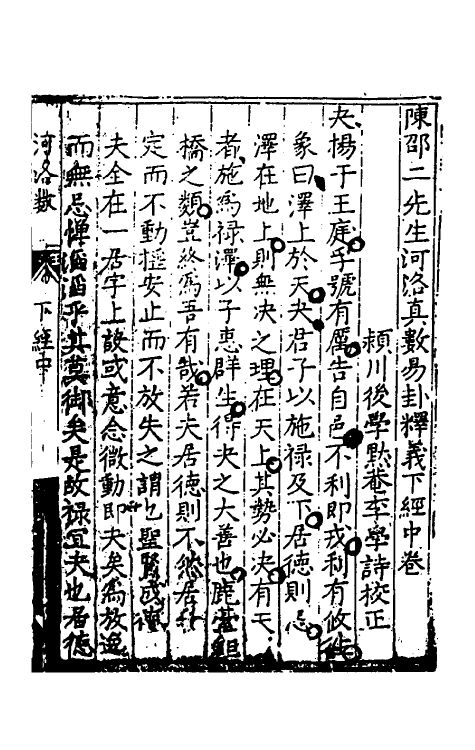 陳邵二先生河洛真數易卦釋義下經中卷
潁川後學默菴李學詩校正
夬揚于王庭孚號有厲告自邑不利即戎利有攸往
象曰澤上於天夬君子以施祿及下居德則忌
澤在地上則無決之理在天上其勢必決有天
者施為祿澤以子惠群生得夬之大善也鹿臺鉅
橋之類豈終為吾有哉若夫居德則不然居者
定而不動極安止而不放失之謂也聖賢或
夫全在一居字上設或意念微動即夬矣為放逸
而無忌憚滔滔乎其莫御矣是故祿宜夬也居德
河洛數
下經中